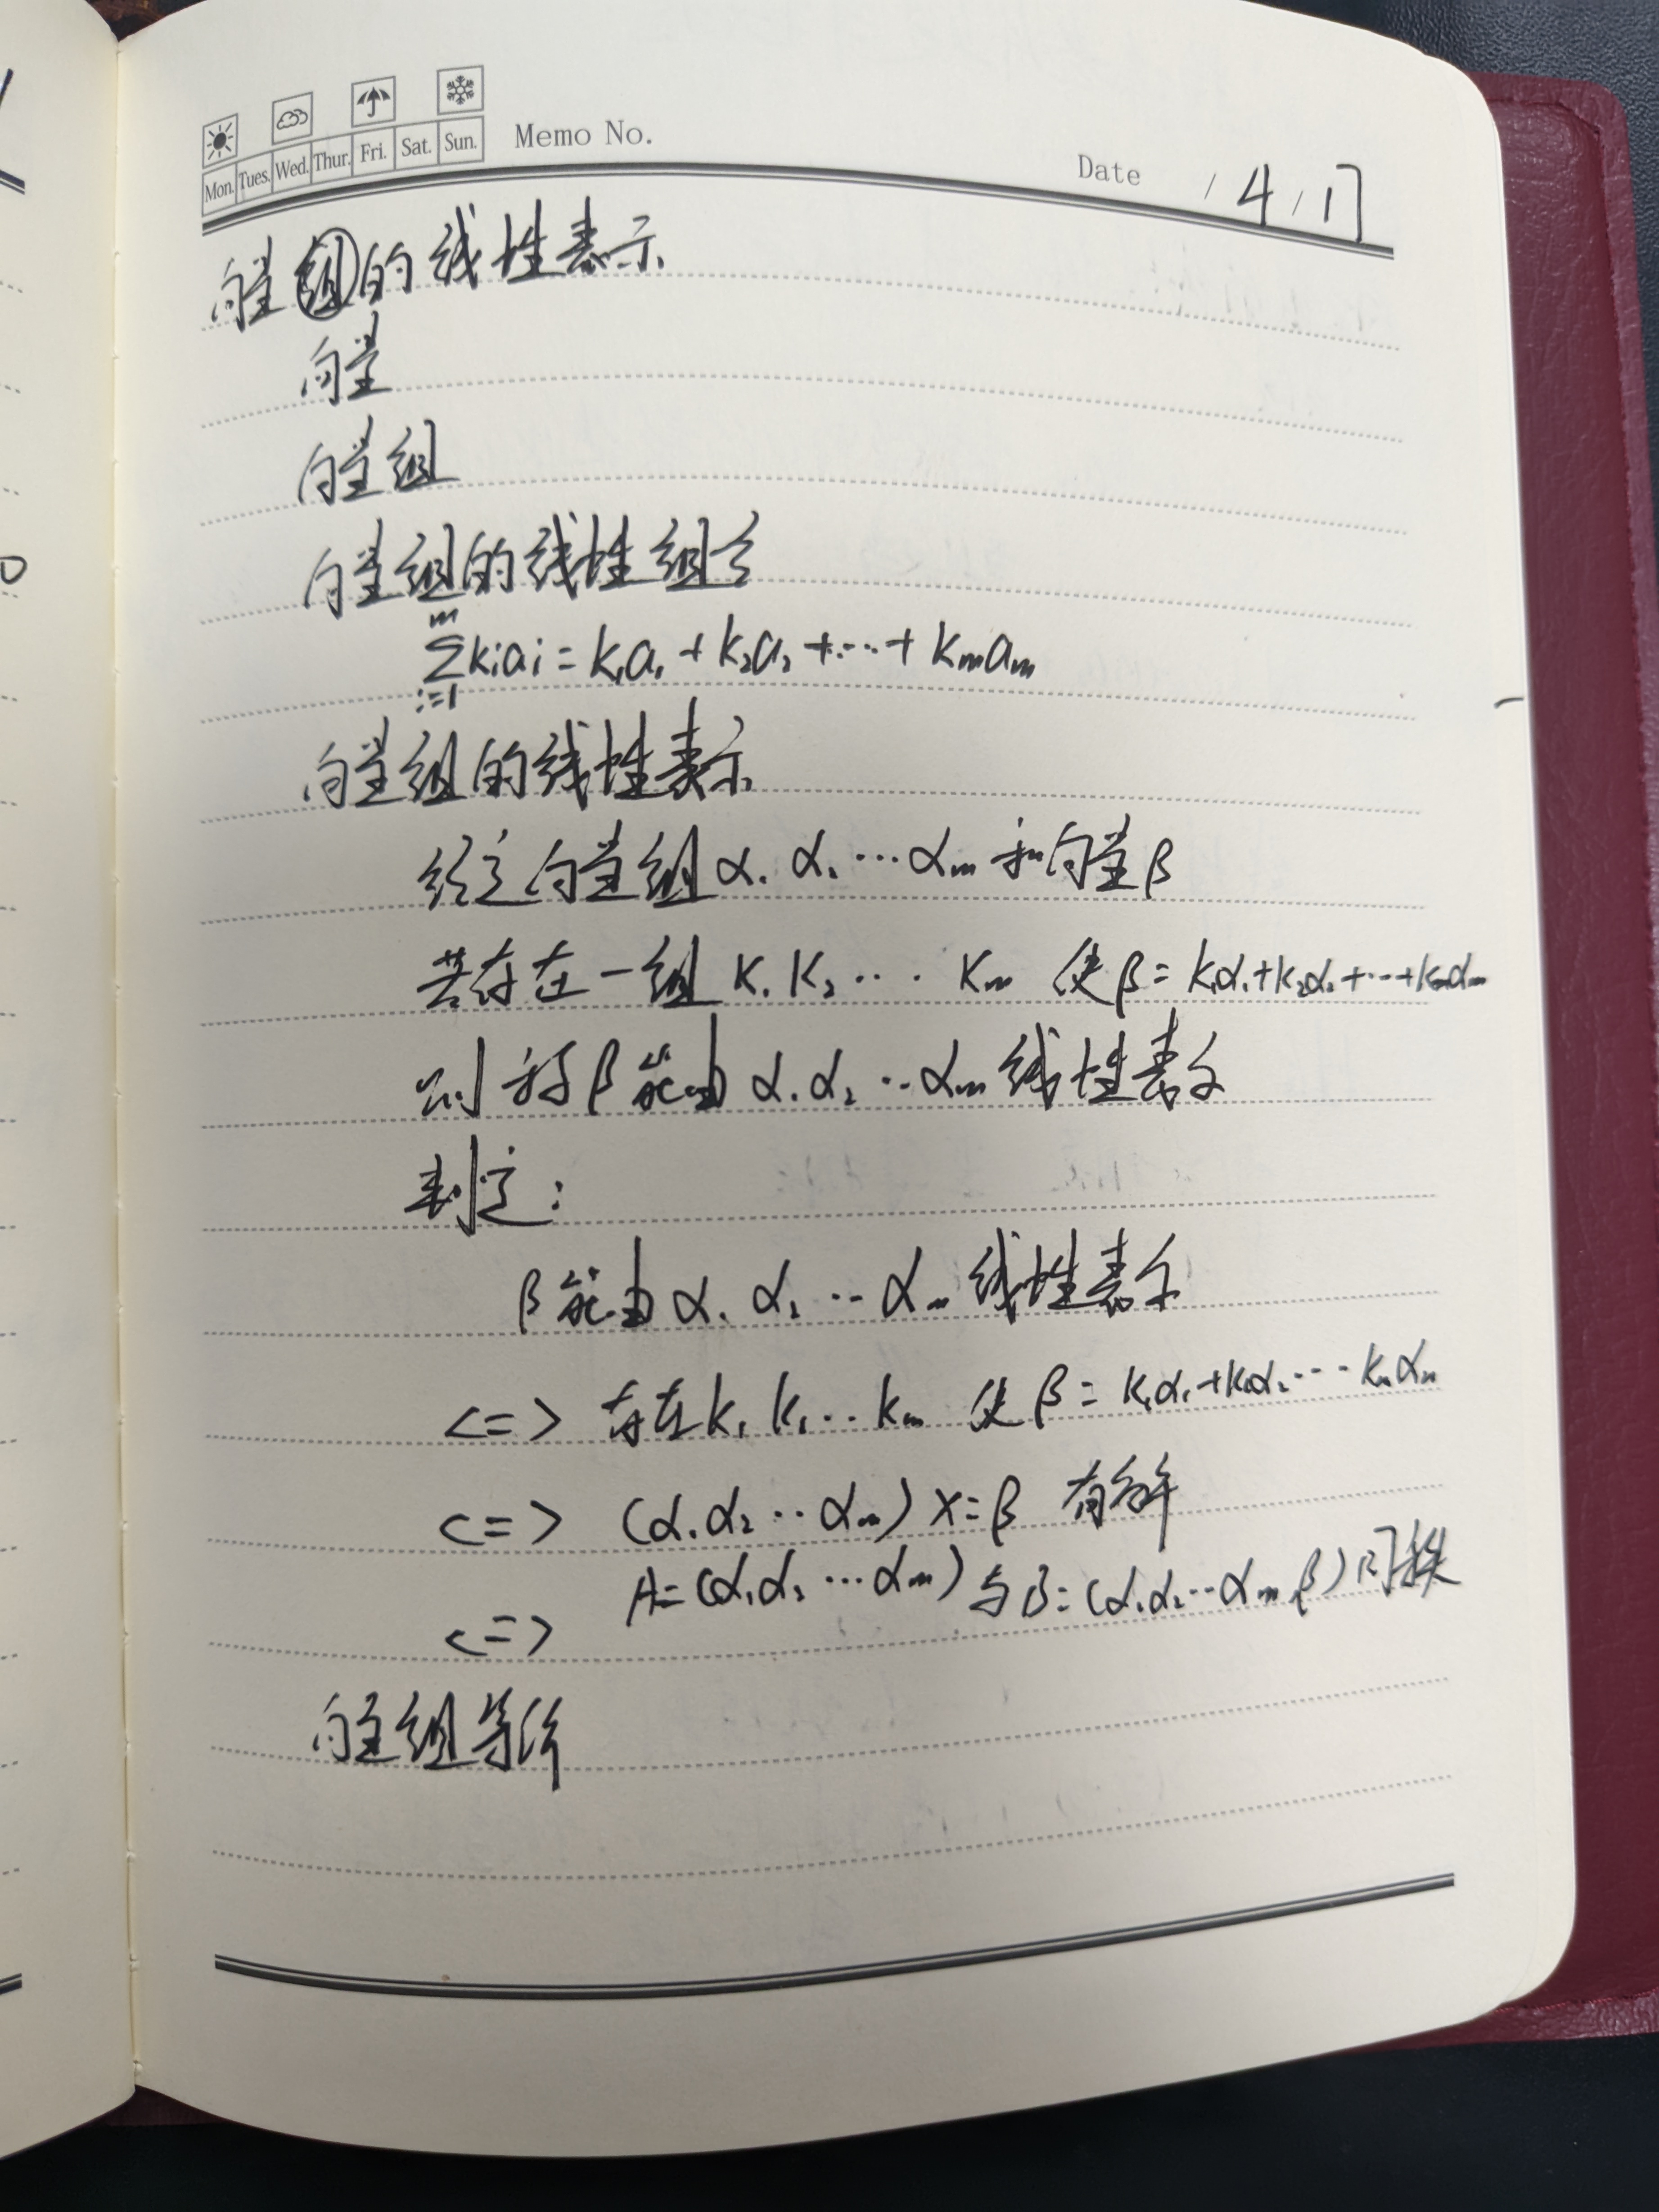 Mon. Tues. Wed. Thur. Fri. Sat. Sun. Memo No.
Date / 4 / 17
向量组的线性表示
向量
向量组
向量组的线性组合
m
∑kiai = k₁a₁ + k₂a₂ + ··· + kmam
i=1
向量组的线性表示
给定向量组 α₁ α₂ ··· αm 和向量 β
若存在一组 K₁ K₂ ··· Km 使 β = k₁α₁+k₂α₂+···+kmαm
则称 β 能由 α₁ α₂ ··αm 线性表示
判定:
β 能由 α₁ α₂ ·· αm 线性表示
<=> 存在 k₁ k₂ ·· km 使 β = k₁α₁+k₂α₂ ··· kmαm
<=> (α₁ α₂ ·· αm) X=β 有解
A=(α₁ α₂ ··· αm) 与 B=(α₁ α₂ ··· αm β) 同秩
<=>
向量组等价